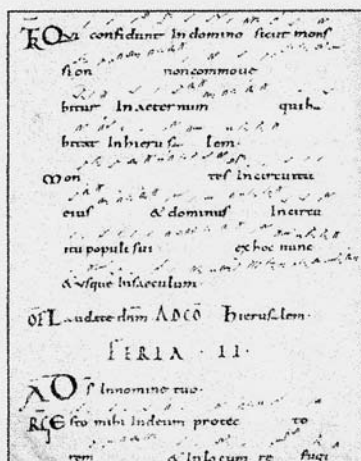 TR Qui confidunt In domino sicut mons
sion non commoue
bitur In aeternum quih
bitat In hieru sa lem
Mon tes In circuitu
eius & dominus In circu
itu populi sui ex hoc nunc
& usque In saeculum.
OF Laudate dnm AD CO hierusalem.
FERIA · II ·
AD DS In nomine tuo.
RG Esto mihi In deum protec to
rem & In locum re fugi